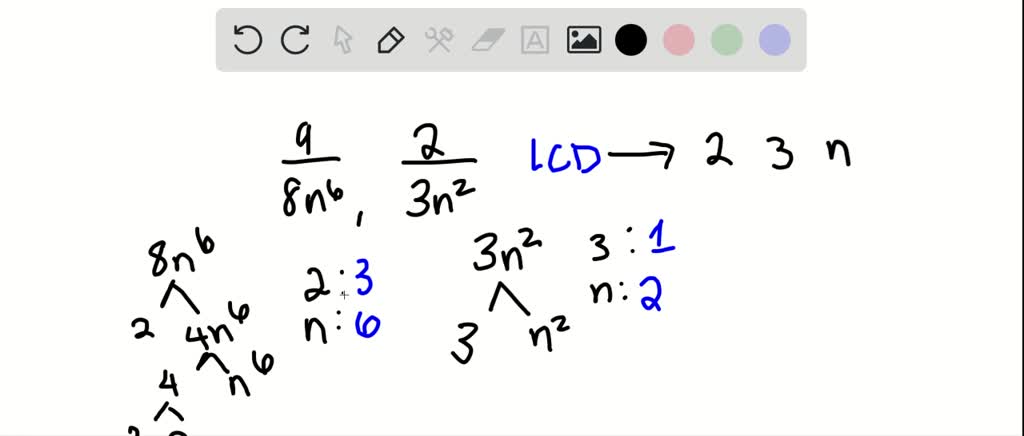 9/8n⁶ , 2/3n² LCD → 2 3 n
8n⁶
2 4n⁶
4 n⁶
2 : 3
n : 6
3n²
3 n²
3 : 1
n : 2